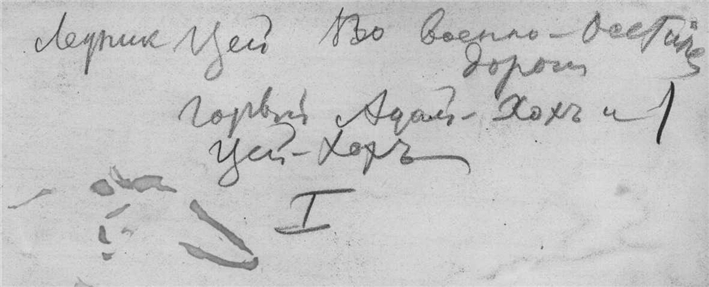 Ледник Цей Во военно-Осетин
дороги
горы Адай-Хохъ и
Цей-Хохъ
I